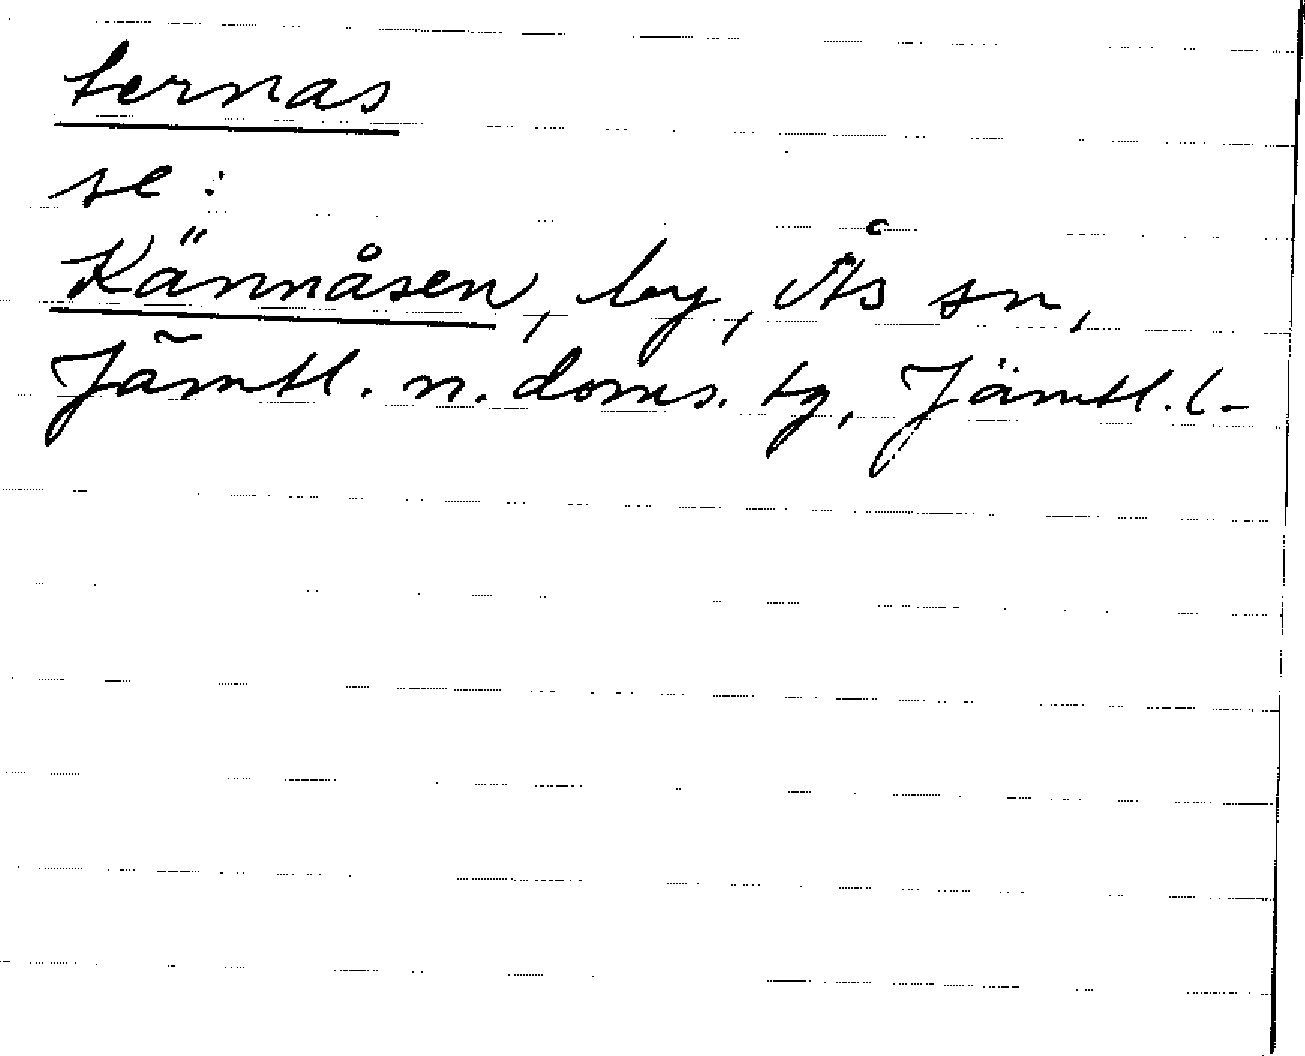 ternas
se:
Kännåsen, by, Ås sn,
Jämtl. n. doms. tg, Jämtl. l.